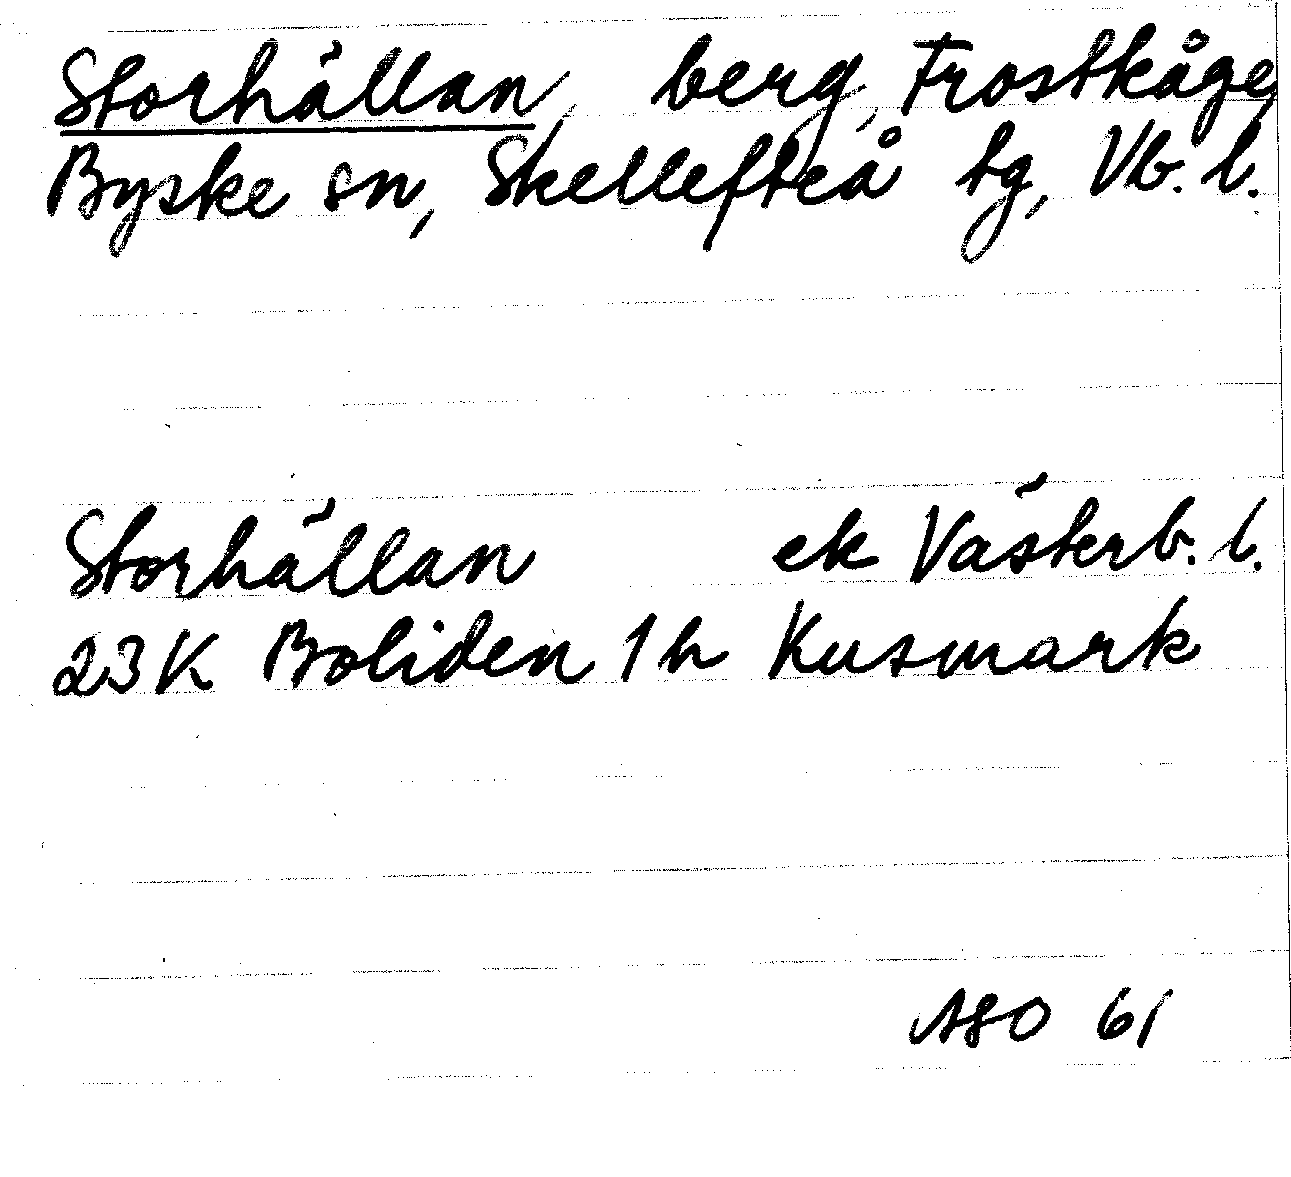 Storhällan, berg, Frostkåge,
Byske sn, Skellefteå tg, Vb. l.
Storhällan ek Västerb. l.
23K Boliden 1h Kusmark
ASO 61